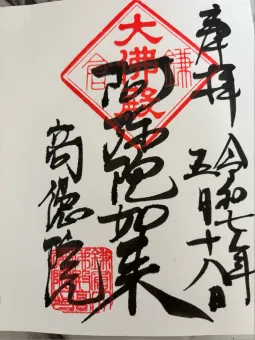 奉拝
令和七年
五月十八日
大佛殿
鎌倉
阿弥陀如来
高徳院